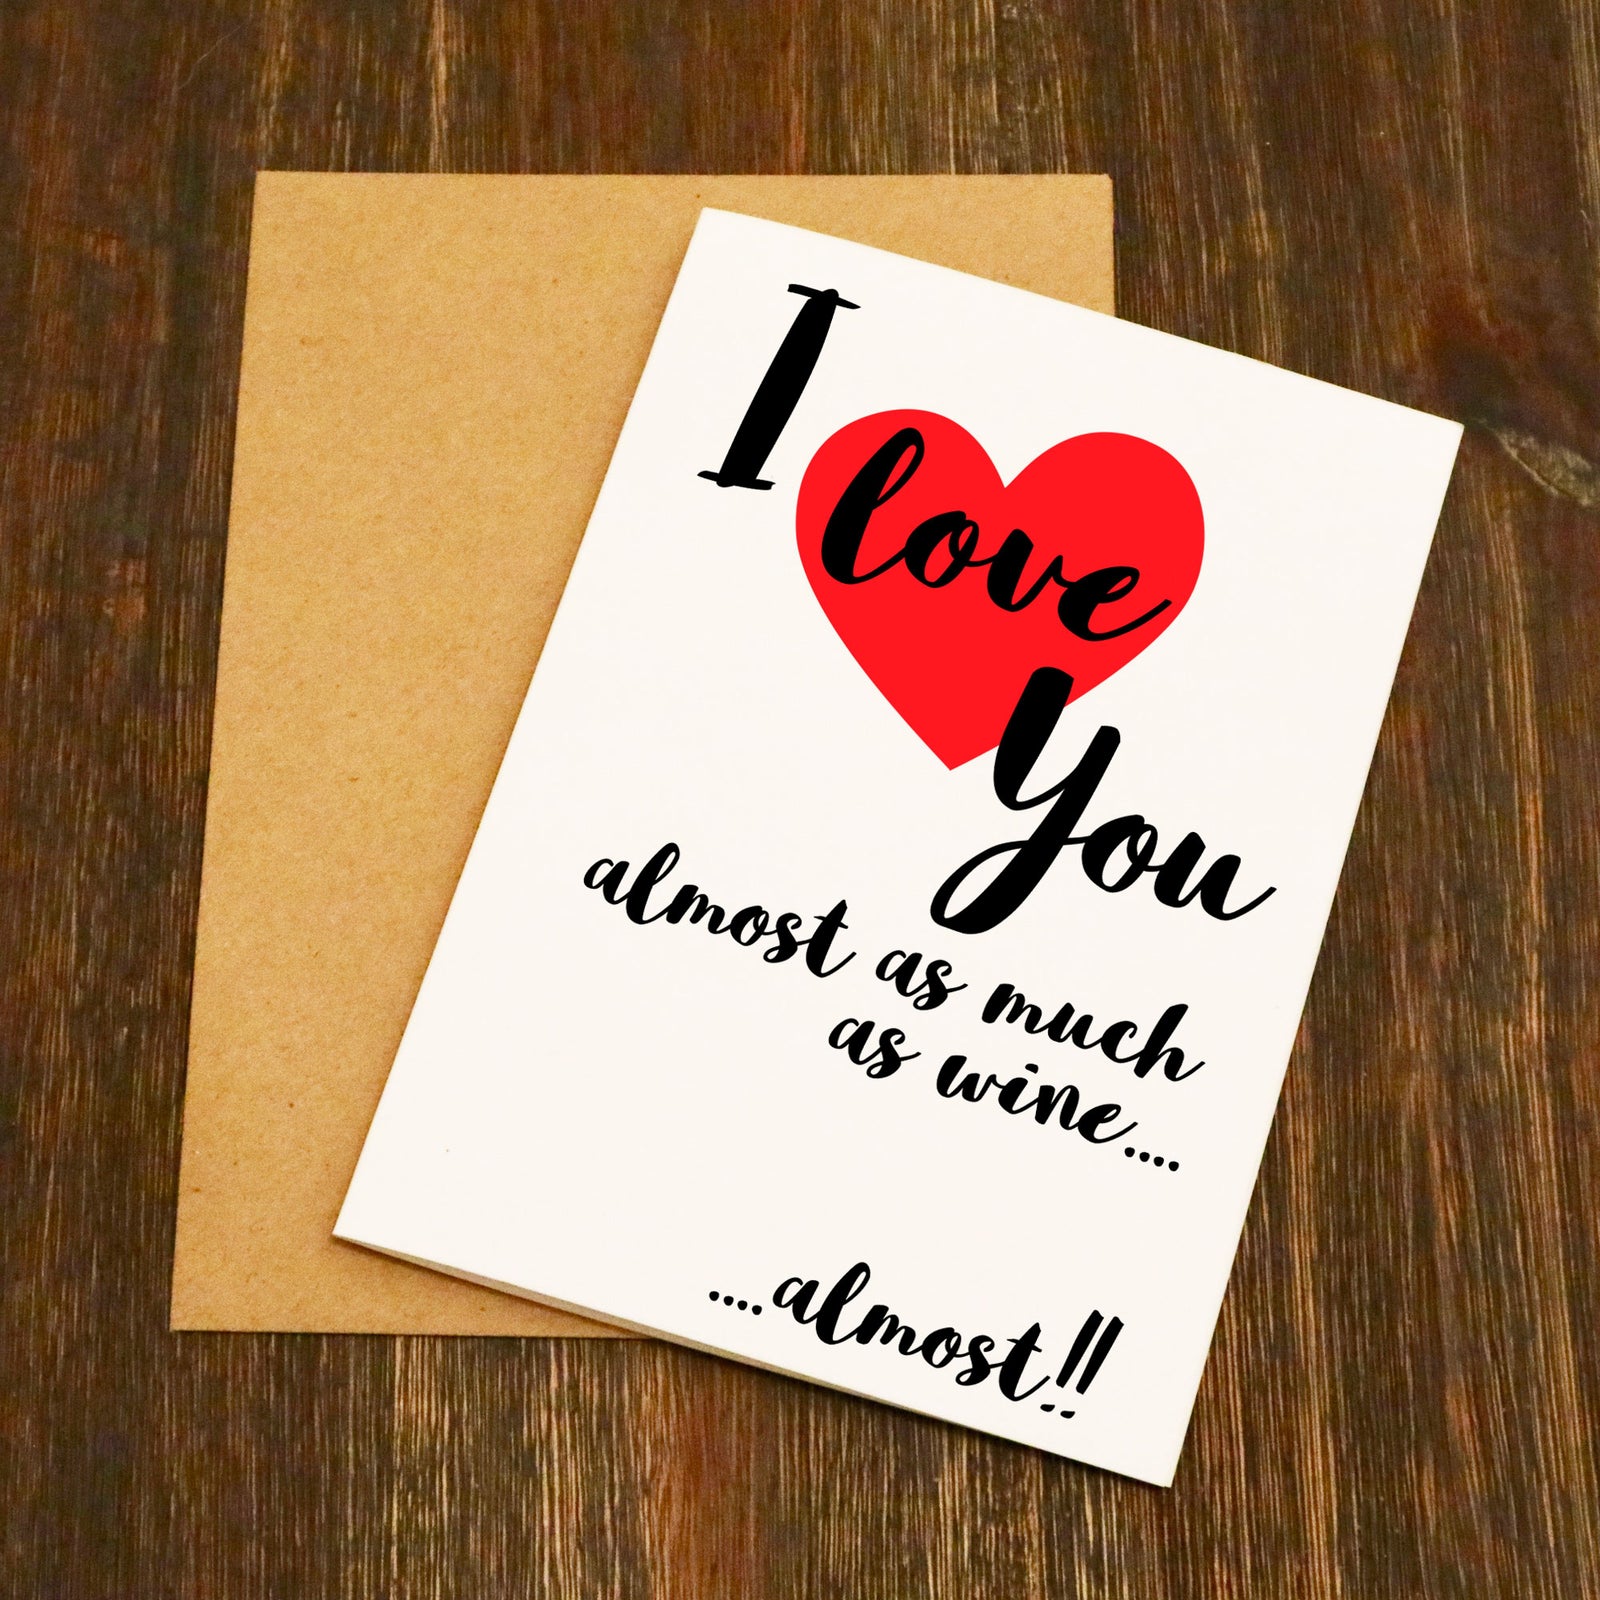 I
love
You
almost as much
as wine....
....almost!!